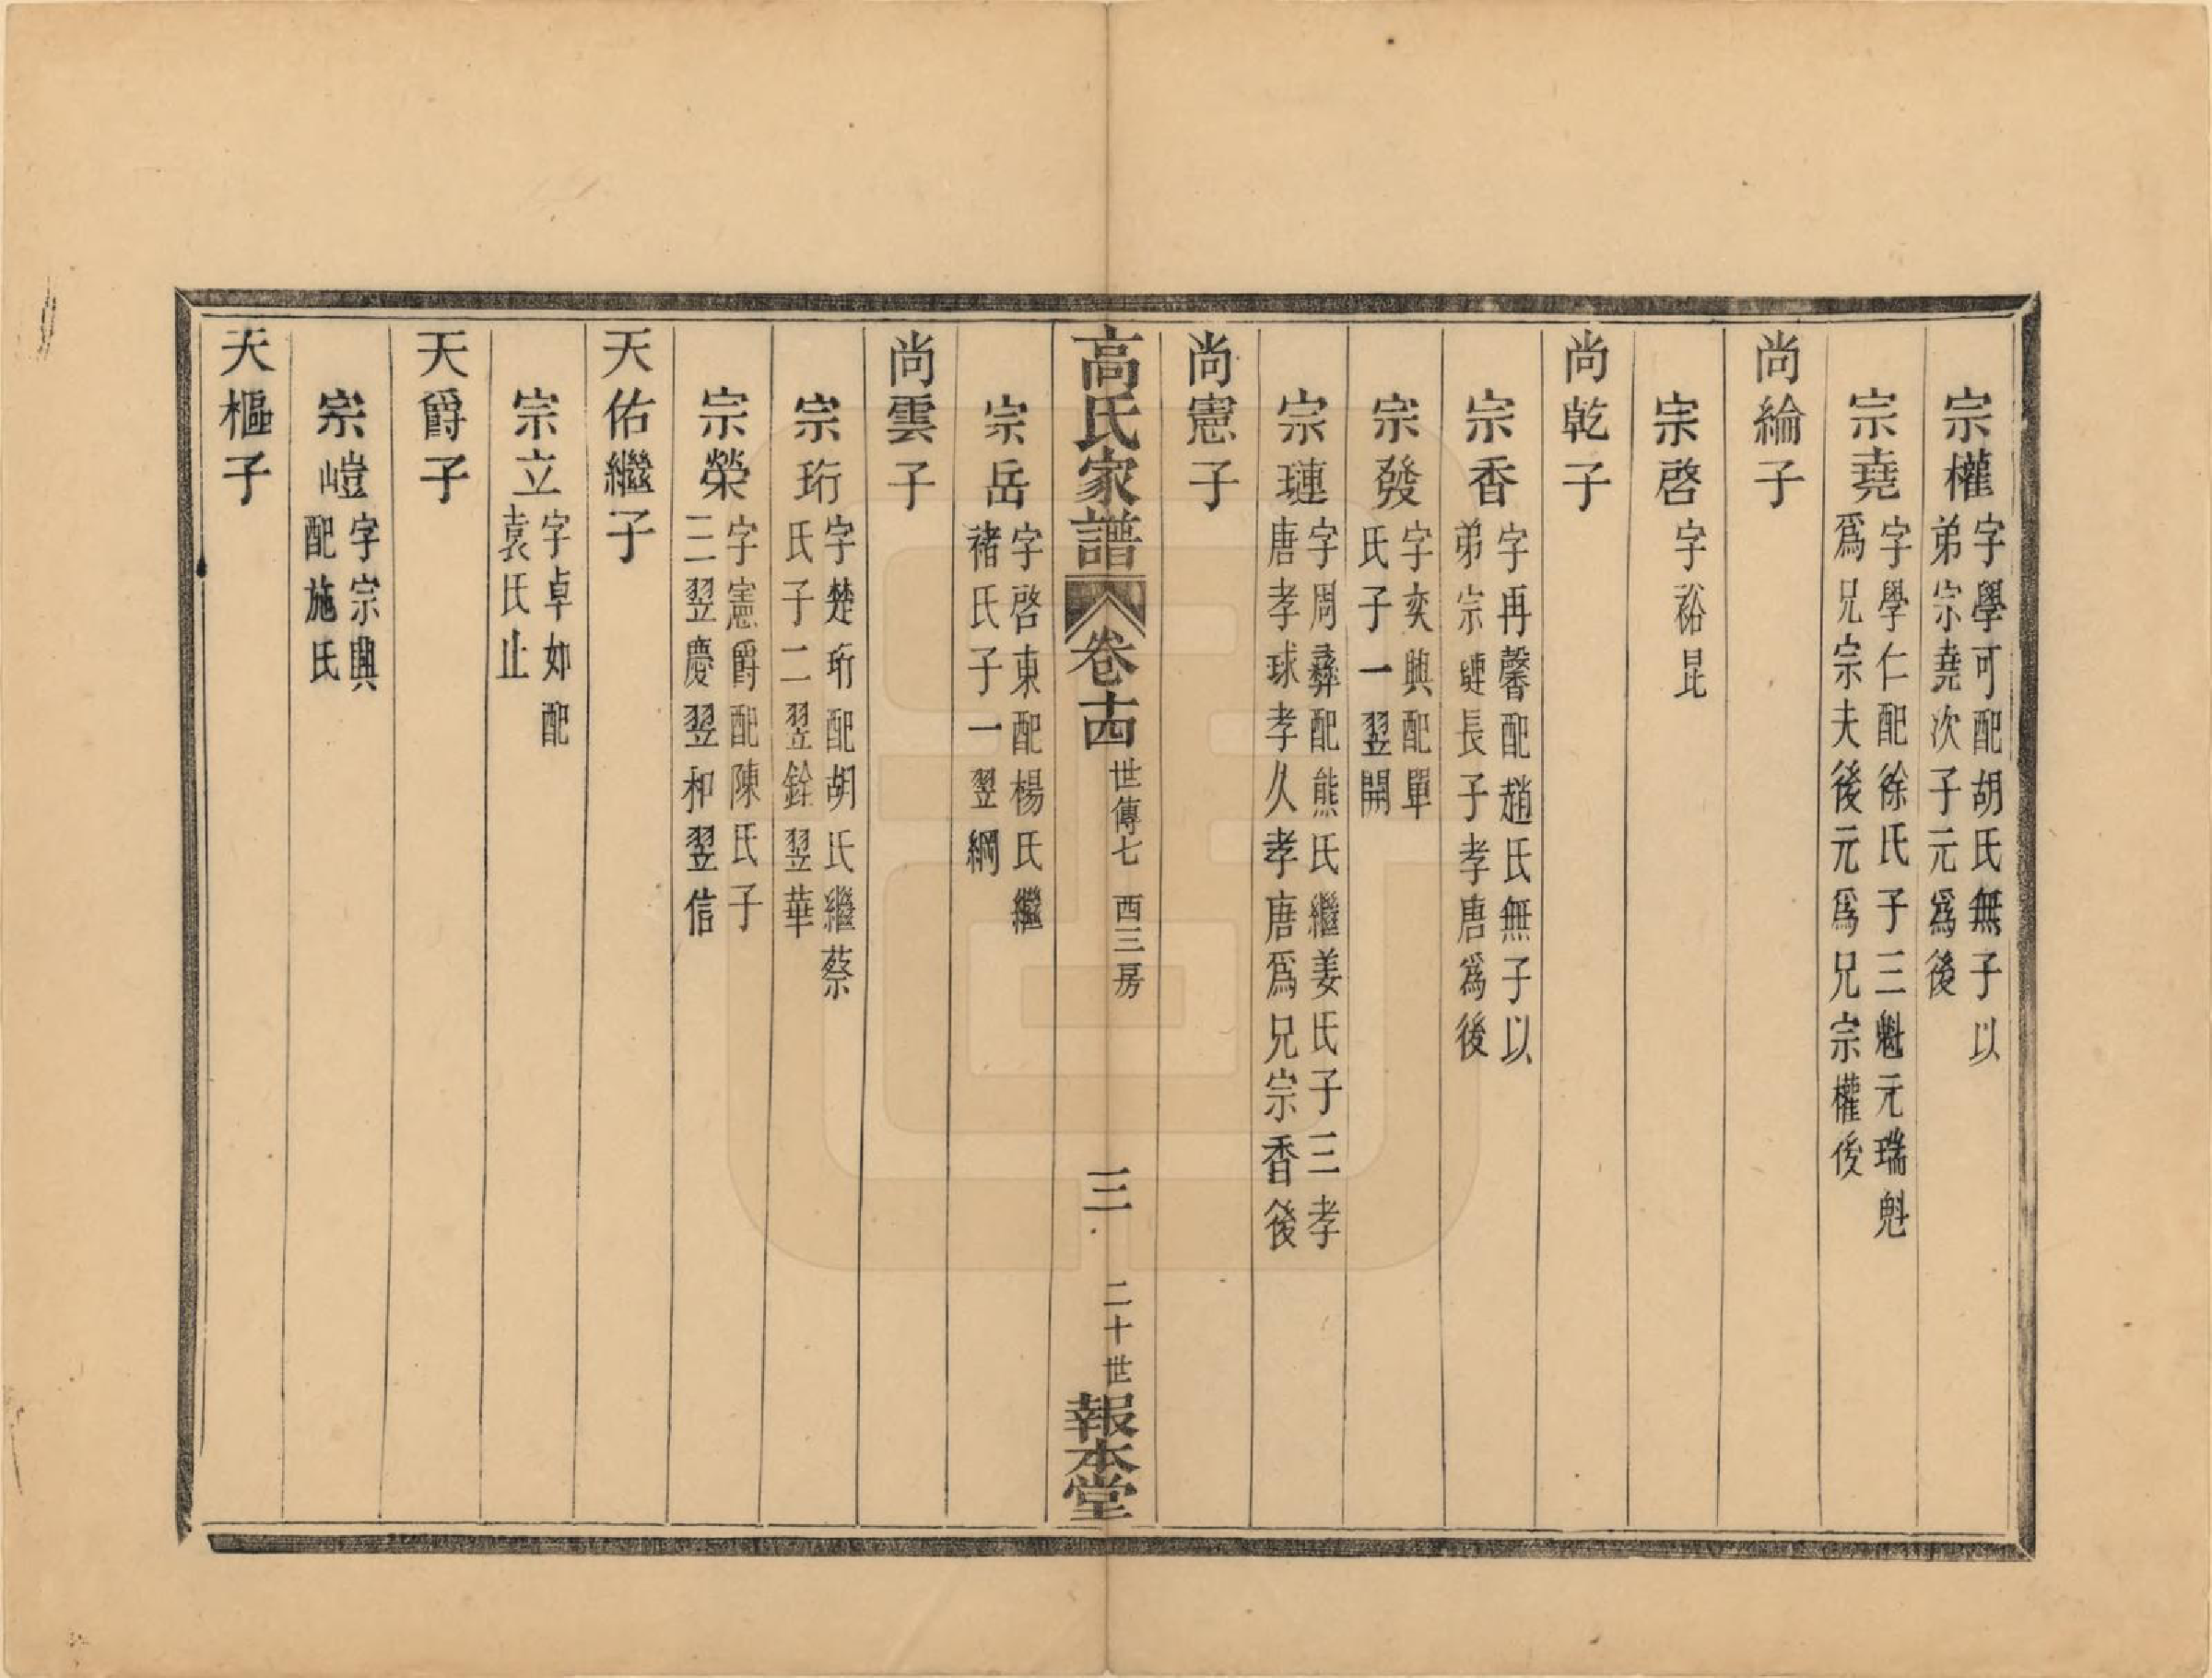 宗權
字學可配胡氏無子以
弟宗堯次子元爲後
宗堯
字學仁配徐氏子三魁元瑞魁
爲兄宗夫後元爲兄宗權後
尚綸子
宗啓
字裕昆
尚乾子
宗香
字再馨配趙氏無子以
弟宗璉長子孝唐爲後
宗發
字奕興配單
氏子一翌開
宗璉
字周彝配熊氏繼姜氏子三孝
唐孝球孝久孝唐爲兄宗香後
尚憲子
高氏家譜
卷十四
世傳七 西三房
三
二十世
報本堂
宗岳
字啓東配楊氏繼
褚氏子一翌綱
尚雲子
宗珩
字楚珩配胡氏繼蔡
氏子二翌銓翌華
宗榮
字憲爵配陳氏子
三翌慶翌和翌信
天佑繼子
宗立
字卓如配
袁氏止
天爵子
宗嵦
字宗興
配施氏
天樞子